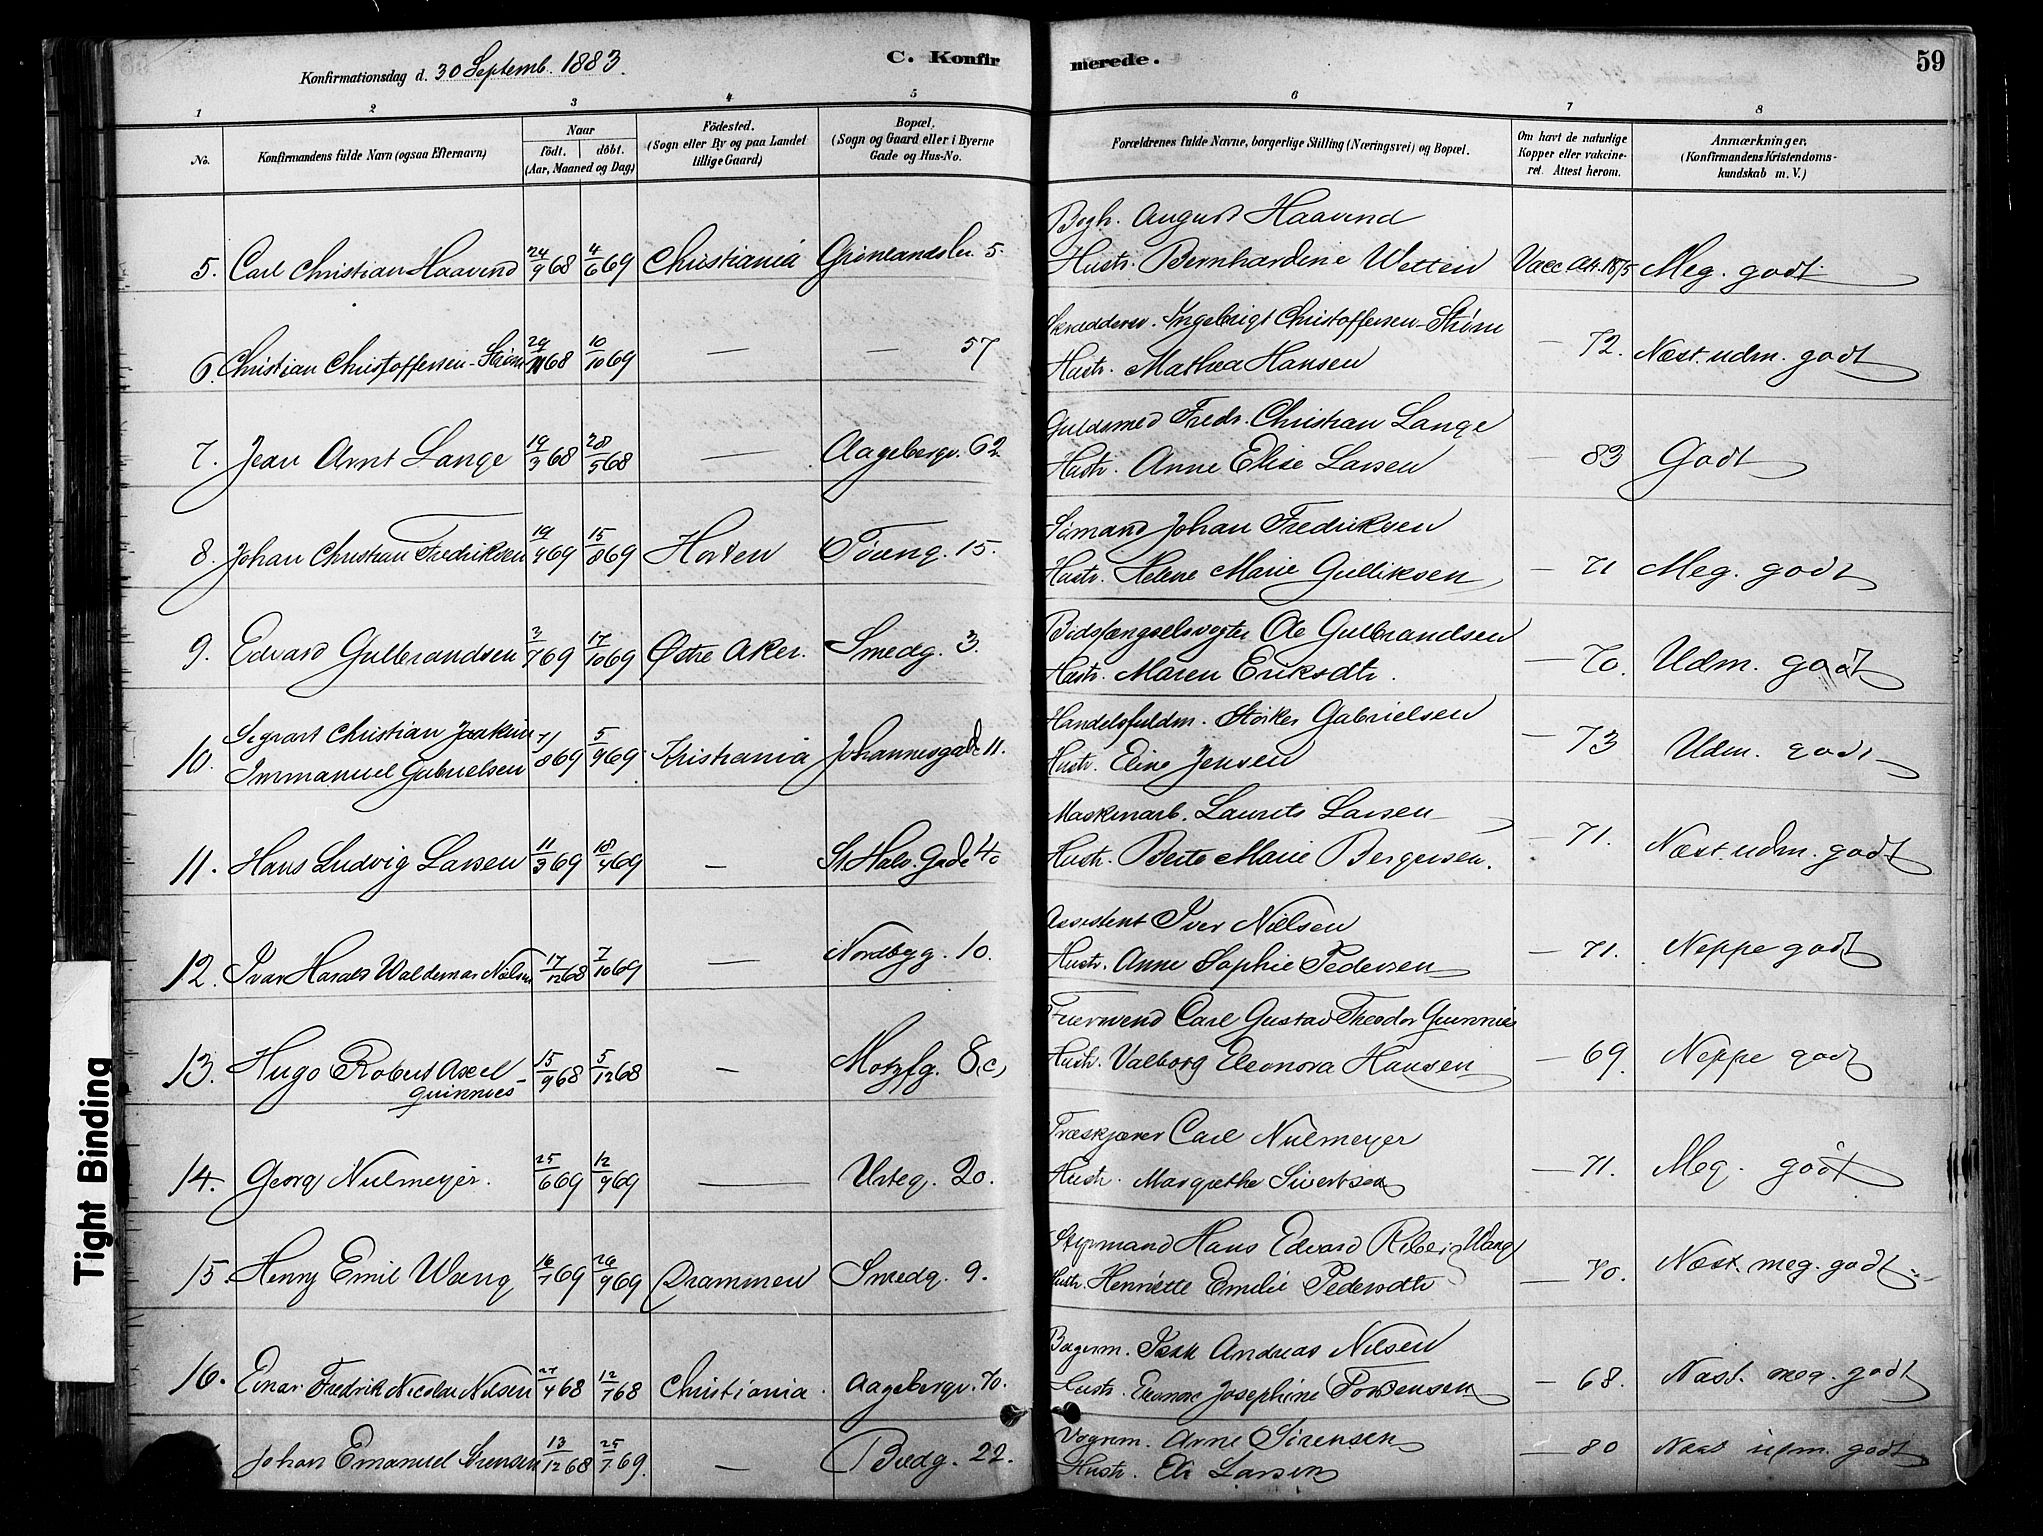 Konfirmationsdag d. 30 Septemb. 1883.
C. Konfirmerede.
59
1 2 3 4 5 6 7 8
No.
Konfirmandens fulde Navn (ogsaa Efternavn)
Naar
födt. döbt.
(Aar, Maaned og Dag)
Födested.
(Sogn eller By og paa Landet
tillige Gaard)
Bopæl.
(Sogn og Gaard eller i Byerne
Gade og Hus-No.
Forældrenes fulde Navne, borgerlige Stilling (Næringsvei) og Bopæl.
Om havt de naturlige
Kopper eller vakcine-
ret. Attest herom.
Anmærkninger.
(Konfirmandens Kristendoms-
kundskab m. V.)
Bogh. August Haavind
5. Carl Christian Haavind 24/9 68 4/6 69 Christiania Grönlandsler. 5. Hustr. Bernhardine Wetten Vacc. Att. 1875 Meg. godt
Skrædders. Ingebrigt Christoffersen-Ström
6. Christian Christoffersen-Ström 29/11 68 10/10 69 — — 57 Hustr. Mathea Hansen — 72. Næst. udm. godt
Guldsmed Fredr. Christian Lange
7. Jean Arnt Lange 19/3 68 28/5 68 — Aagebergv. 62 Hustr. Anne Elise Larsen — 83 Godt
Sömand Johan Fredriksen
8. Johan Christian Fredriksen 19/4 69 15/8 69 Horten Töieng. 15. Hustr. Helene Marie Gulliksen — 71 Meg. godt
Bodsfængselsvogter Ole Gulbrandsen
9. Edvard Gulbrandsen 3/7 69 17/10 69 Östre Aker. Smedg. 3. Hustr. Maren Eriksdtr. — 70. Udm. godt
Sigvart Christian Joakim Handelsfuldm. Störker Gabrielsen
10. Immanuel Gabrielsen 11/8 69 5/9 69 Kristiania Johannesgade 11. Hustr. Eline Jensen — 73 Udm. godt
Maskinarb. Laurits Larsen
11. Hans Ludvig Larsen 11/3 69 18/4 69 — St. Halv. Gade 40 Hustr. Berte Marie Bergersen. — 71. Næst. udm. godt
Assistent Iver Nielsen
12. Ivar Harald Waldemar Nielsen 17/12 68 7/10 69 — Nordbyg. 10. Hustr. Anne Sophie Pedersen — 71. Neppe godt
Carl Gustav Theodor Guinnies
13. Hugo Robert Axel 15/9 68 5/12 68 — Motzfg. 8c, Hustr. Valborg Eleonora Hansen — 69. Neppe godt
Guinnies
Træskjærer Carl Nulmeyer
14. Georg Nulmeyer. 25/6 69 12/9 69 — Urteg. 20. Hustr. Margrethe Sivertsen — 71. Meg. godt
Styrmand Hans Edvard Wang
15 Henry Emil Wang 16/7 69 26/9 69 Drammen Smedg. 9. Hustr. Henriette Emilie Pedersdtr — 70. Næst. meg. godt
Bogerm. Isak Andreas Nilsen
16. Einar Fredrik Nicolai Nilsen 27/4 68 12/7 68 Christiania. Aagebergv. 70. Hustr. Josephine — 68. Næst. meg. godt
Vognm. Arne Sörensen
Johan Emanuel Sörensen 13/12 68 25/7 69. — Bredg. 22. Hustr. Eli Larsen — 80 Næst udm. godt
Tight Binding